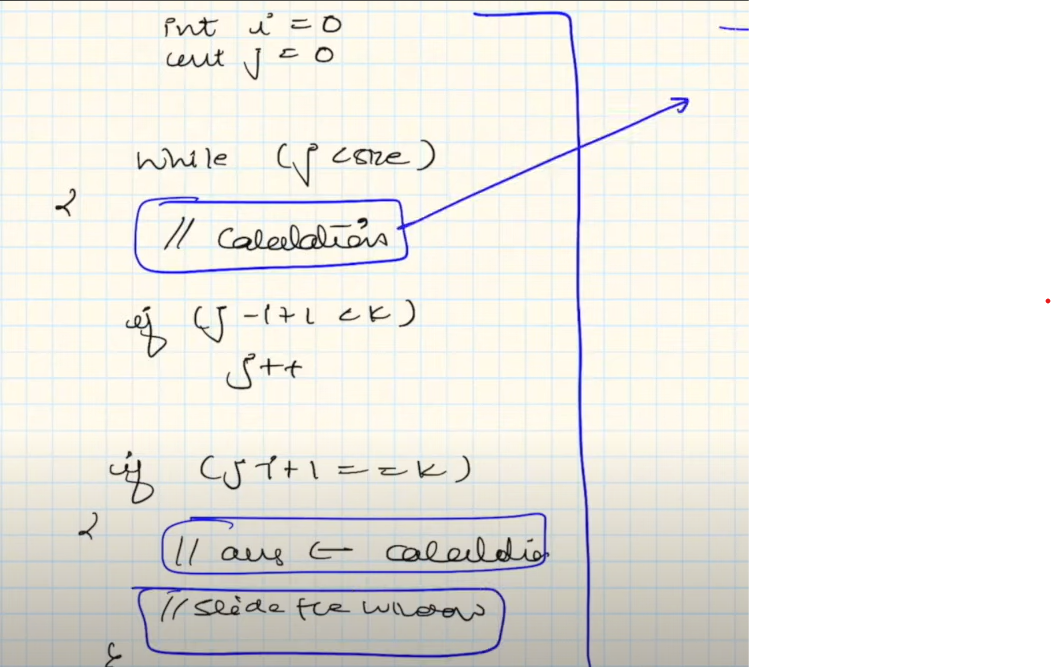 int i = 0
int j = 0
while (j < size)
{
// Calculations
if (j - i + 1 < k)
j++
if (j - i + 1 == k)
{
// ans ← calculatio
// slide the window
}